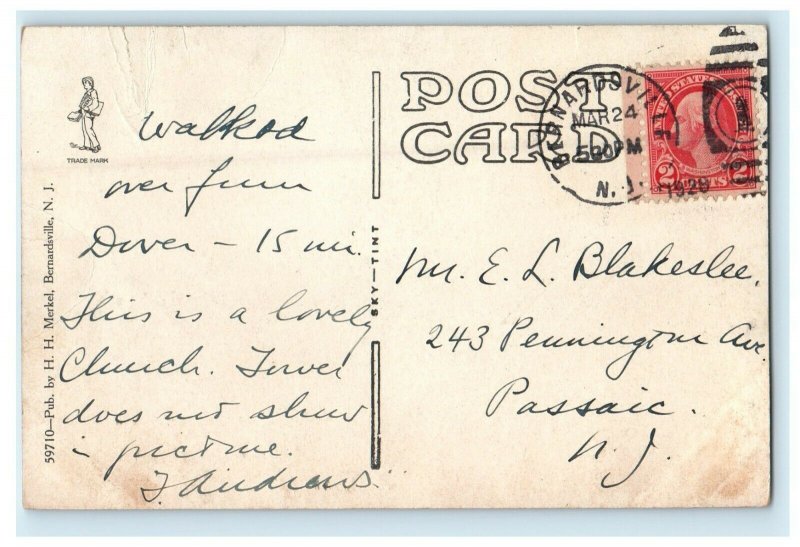 TRADE MARK
59710—Pub. by H. H. Merkel, Bernardsville, N. J.
Walked
over from
Dover – 15 mi.
This is a lovely
Church. Tower
does not show
in picture.
J Andrews.
POST
CARD
SKY—TINT
BERNARDSVILLE
MAR 24
5 PM
N. J.
1929
UNITED STATES POSTAGE
2 CENTS 2
Mr. E. L. Blakeslee.
243 Pennington Ave.
Passaic.
N. J.